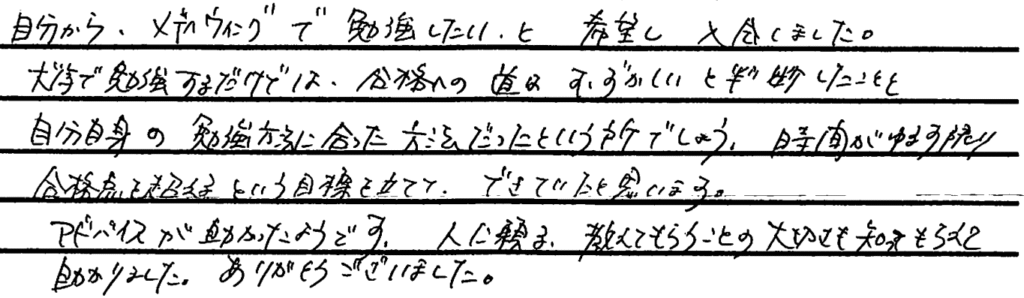 自分から、メディカウィングで勉強したい、と 希望し 入会しました。
大学で勉強するだけでは、合格への道は むずかしいと判断したことと
自分自身の 勉強方法に合った方法だったという
合格点を超える という目標を立てて、できていたと思います。
アドバイスが助かったようです。人に頼る、教えてもらうことの大切さも
助かりました。ありがとうございました。